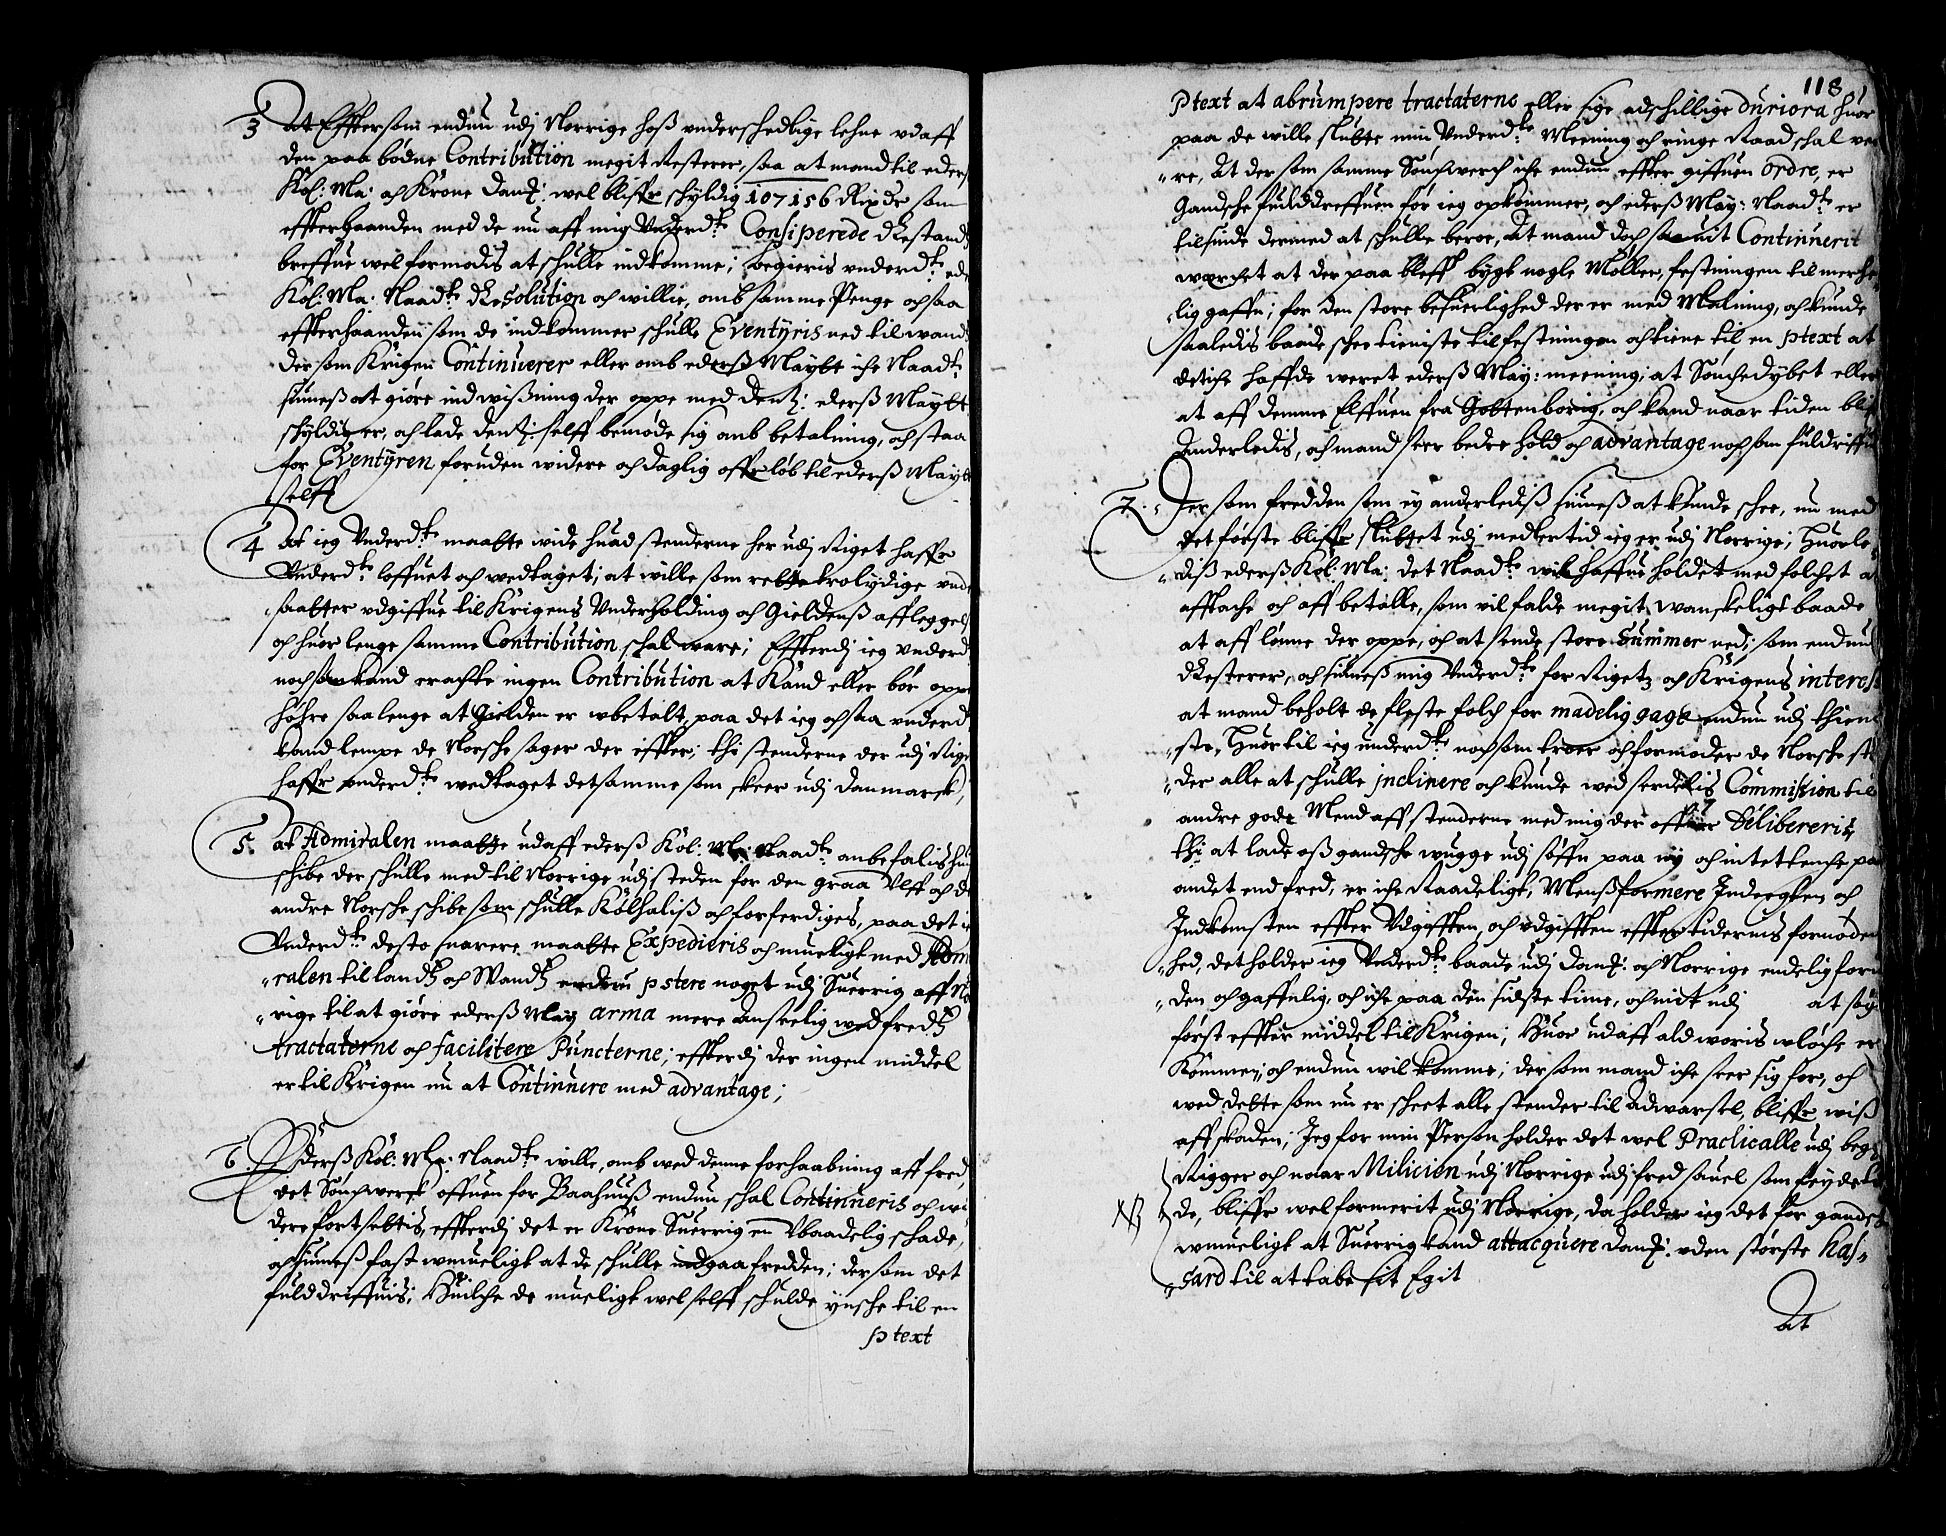 3 At Effttersom endnu udj Norrige hoß underschedlige lehne udaff
den paa bødne Contribution megit Resterer, saa at mand til eders
Kol: Ma: och Krone Danm: wel bliffr schyldig 107156 Rixdr som
effterhaanden med de nu aff mig Underd:te Consiperede Restand
breffue wel formodis at schulle indkomme; begieris underd:te eders
Kol: Ma: Naad:te Resolution och willie, omb samme Penge ochsaa
effterhaanden som de indkommer schulle Eventyris ned til wands
dersom Krigen Continuerer eller omb ederß Maytt iche Naad:te
siuneß at giøre indwißning der oppe med dem ederß Maytt
schyldig er, och lade dem selff bemøde sig omb betalning, och staa
for Eventyren foruden widere och daglig offrløb til ederß Maytt
selff
4 At ieg Underd:te maatte wide huad stenderne her udj Riget haffr
Underd:te loffuet och wedtaget; at wille som rette trolydige und
saatter udgiffue til Krigens Underholding och Gieldenß affleggelse
och huor lenge samme Contribution schal ware; Effterdj ieg underd
nochsom kand erachte ingen Contribution at Kand eller bør opp
høhre saalenge at Gielden er ubetalt, paa det ieg ochsaa underd
kand lempe de Norsche sager der effter; thi stenderne der udj Riget
haffr underd:te wedtaget detsamme som skeer udj Danmarck,
5. at Admiralen maatte udaff ederß Kol: Ma: Naad:te anbefalis huad
schibe der schulle med til Norrige udj steden for den graa Ulff och de
andre Norsche schibe som schulle Kølhaliß och forferdiges, paa det ieg
Underd:te desto snarere maatte Expedieris och mueligt med Admi
ralen til landtz och Wandtz endnu pstere noget udj Suerrig aff No
rige til at giøre ederß May arma mere Anseelig wed fredtz
tractaterne och facilitere Puncterne; effterdj der ingen middel
er til Krigen nu at Continuere med advantage;
6. Ederß Kol: Ma: Naad:te wille, omb wed denne forhaabning aff fred
det Sønchwerck offuen for Baahuuß endnu schal Continueris och wi
dere fortsettis, effterdj det er Krone Suerrig en Ubaadelig schade,
och siuneß fast umueligt at de schulle indgaa fredden; dersom det
fulddriffuis; Huilche de mueligt wel selff schulde ynsche til en
ptext
118
Ptext at abrumpere tractaterne eller sige adschillige duriora huor
paa de wille slutte min Underd:te Meening och ringe Raad schal we
re, At dersom samme Sønchwerch iche endnu effter giffuen ordre, er
Gandsche fulddreffuen før ieg opkommer, och ederß May: Naad:te er
tilsinde dermed at schulle beroe, At mand doch saa uit Continuerit
werchet at der paa bleff bygt nogle Møller, festningen til merche
lig gaffn; for den store besuerlighed der er med Malning, och kunde
saaledis baade schee tieniste til festningen och tiene til en ptext at
det iche haffde weret ederß May: meening; at Sønchedybet eller
at aff demme Elffuen fra Gottenborrig, och kand naar tiden blif
Anderledis, och mand seer bedre hold och advantage nochsom fuldriffuis
7. Dersom fredden som ey anderlediß siuneß at kunde schee, nu med
det første bliffr sluttet udj medlertid ieg er udj Norrige; Huorle
diß ederß Kol: Ma: det Naad:te wil haffue holdet med folchet at
afftache och aff betalle, som vil falde megit wanskeligt baade
at aff lønne der oppe, och at sende store Summer ned; som endnu
Resterer, och siuneß mig Underd:te for Rigetz och Krigens interes
at mand beholt de fleste folch for madelig gage endnu udj thiene
ste, Huortil ieg underd:te nochsom troer och formoder de Norske st
der alle at schulle inclinere och kunde wed serdelis Commission til
andre gode Mend aff stenderne med mig der offuer Delibereris,
thi at lade oß gandsche wugge udj søffn paa ny och intet tenche paa
andet end fred, er iche Raadeligt, Menß formere Inderchten och
Indkomsten effter Udgifften, och udgifften effter tidernis fornøden
hed, det holder ieg Underd:te baade udj Danm: och Norrige endelig forn
den och gaffnlig, och iche paa den sidste time, och nit udj at søge
først effter middel til Krigen; Huor udaff ald woris uløche er
Kommen, och endnu wil komme; dersom mand iche seer sig for, och
wed dette som nu er scheet alle stender til Adwarsel, bliffr wiß
aff skaden; Jeg for min Person holder det wel Practicalle udj begge
Rigger och naar Milicien udj Norrige udj fred sauel som feydeti
NB de, bliffr wel formerit udj Norrige, da holder ieg det for gandsche
umueligt at Suerrig kand attacquere Danm: uden største Has-
sard til at tabe sit Egit
At